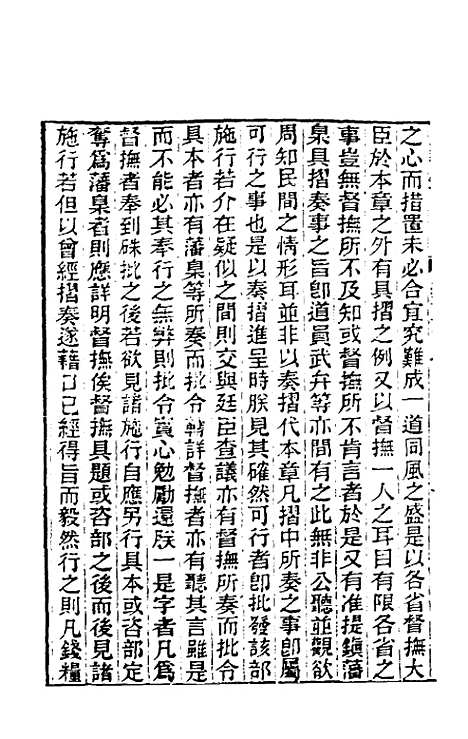 之心而措置未必合宜究難成一道同風之盛是以各省督撫大
臣於本章之外有具摺之例又以督撫一人之耳目有限各省之
事豈無督撫所不及知或督撫所不肯言者於是又有准提鎭藩
臬具摺奏事之旨卽道員武弁等亦間有之此無非公聽並觀欲
周知民間之情形耳並非以奏摺代本章凡摺中所奏之事卽屬
可行之事也是以奏摺進呈時朕見其確然可行者卽批發該部
施行若介在疑似之間則交與廷臣查議亦有督撫所奏而批令
具本者亦有藩臬等所奏而批令轉詳督撫者亦有聽其言雖是
而不能必其奉行之無弊則批令實心勉勵還朕一是字者凡爲
督撫者奉到硃批之後若欲見諸施行自應另行具本或咨部定
奪爲藩臬者則應詳明督撫俟督撫具題或咨部之後而後見諸
施行若但以曾經摺奏遂藉口已經得旨而毅然行之則凡錢糧